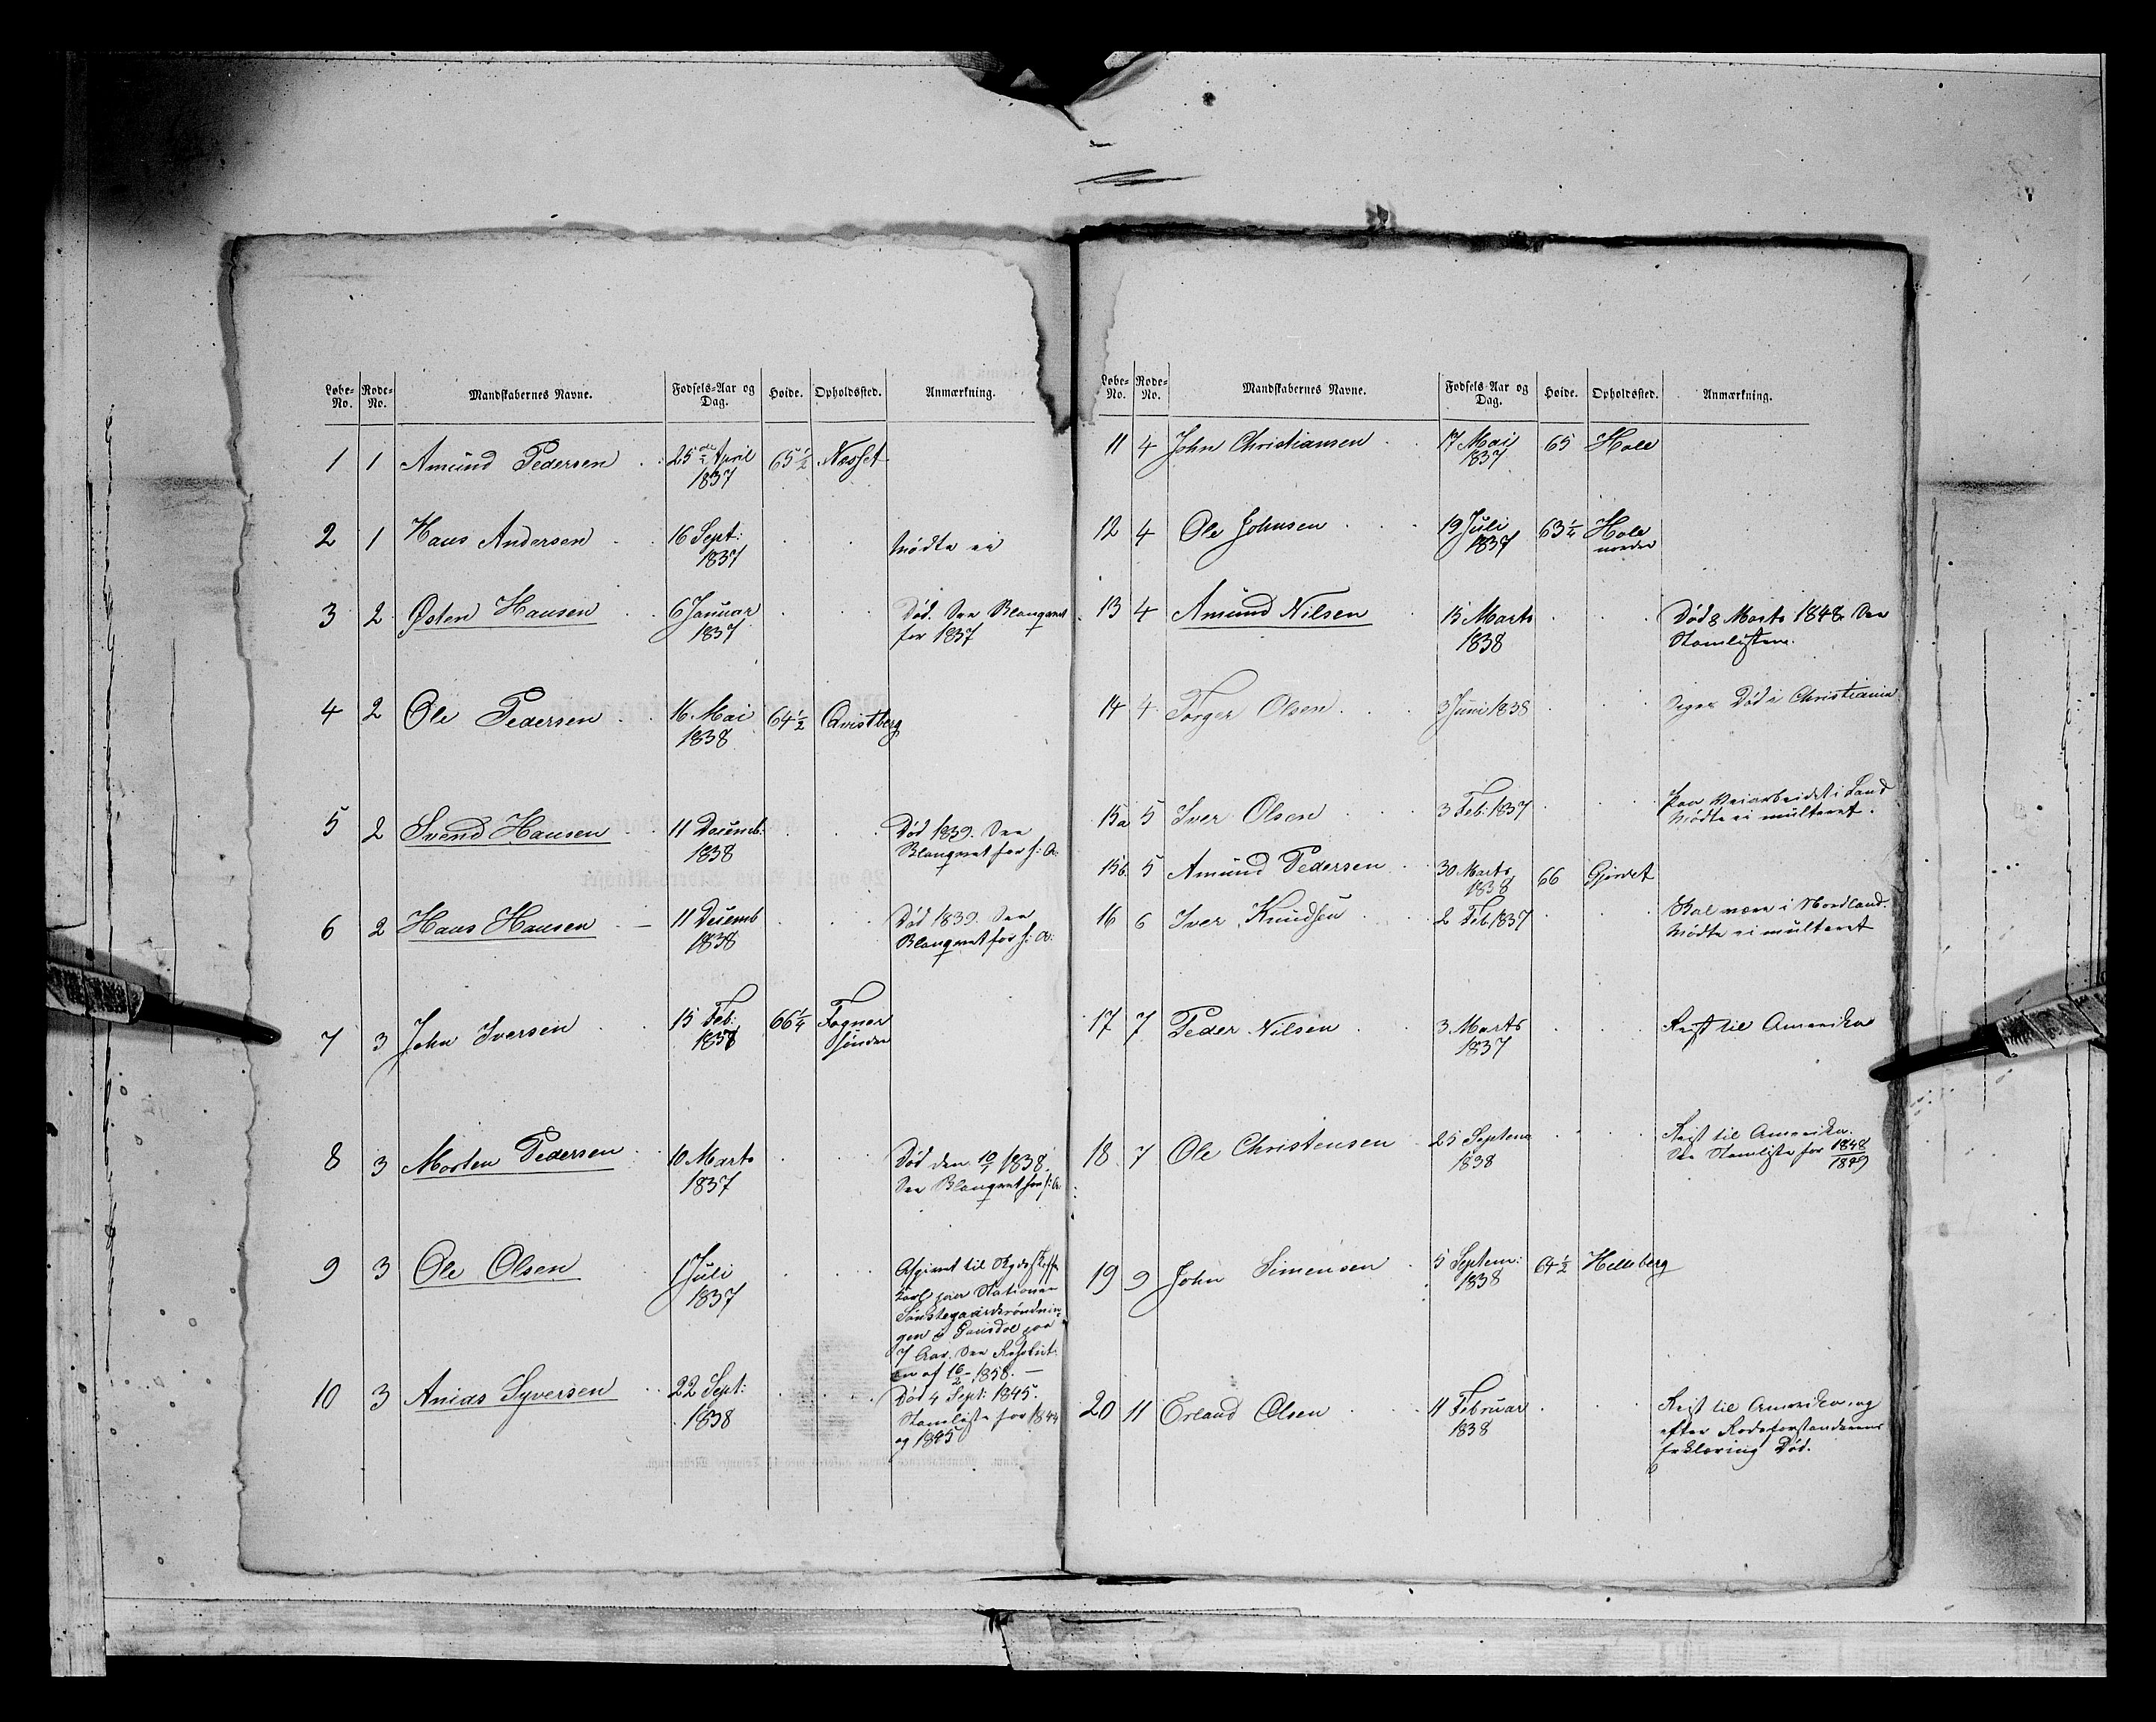 Løbe-No. Rode-No. Mandskabernes Navne. Fødsels-Aar og Dag. Høide. Opholdssted. Anmærkning.
1 1 Amund Pedersen 25de April 1837 65 1/2 Næsset
2 1 Hans Andersen 16 Sept: 1837 Mødte ei
3 2 Østen Hansen 6 Januar 1837 Død. See Blanqvet
for 1837
4 2 Ole Pedersen 16 Mai 1838 64 1/2 Qvistberg
5 2 Svend Hansen 11 Decemb: 1838 Død 1839. See
Blanqvet for s: A:
6 2 Hans Hansen 11 Decemb 1838 Død 1839. See
Blanqvet for s: A:
7 3 John Iversen 15 Feb: 1837 66 1/4 Fogner
søndre
8 3 Morten Pedersen 10 Marts 1837 Død den 1838.
See Blanqvet for s: A
9 3 Ole Olsen 1 Juli 1837 Afgivet til
Karl paa Stationen
gen i Gausdal paa
7 Aar. See Resolut.
en af 16/2 1858.
10 3 Anias Syversen 22 Sept: 1838 Død 4 Sept: 1845.
Stamliste for 1844
og 1845
Løbe-No. Rode-No. Mandskabernes Navne. Fødsels-Aar og Dag. Høide. Opholdssted. Anmærkning.
11 4 John Christiansen 17 Mai 1837 65 Hole
12 4 Ole Johnsen 19 Juli 1837 63 1/4 Hole
nordre
13 4 Amund Nilsen 15 Marts 1838 Død 8 Marts 1848. See
Stamlisten.
14 4 Torger Olsen 3 Juni 1838 Død i Christiania
15a 5 Iver Olsen 3 Feb: 1837 paa Veiarbeidet i Land
Mødte ei multeret.
15b. 5 Amund Pedersen 30 Marts 1838 66 Gjørdet
16 6 Iver Knudsen 2 Feb. 1837 Skal være i Nordland.
Mødte ei multeret
17 7 Peder Nilsen 3 Marts 1837 Reist til Amerika
18 7 Ole Christensen 25 Septem 1838 Reist til Amerika.
See Stamliste for 1848/1849
19 9 John Simensen 5 Septem: 1838 64 1/2 Helleberg
20 11 Erland Olsen 11 Februar 1838 Reist til Amerika og
efter Rodeforstanderens
Erklæring Død.